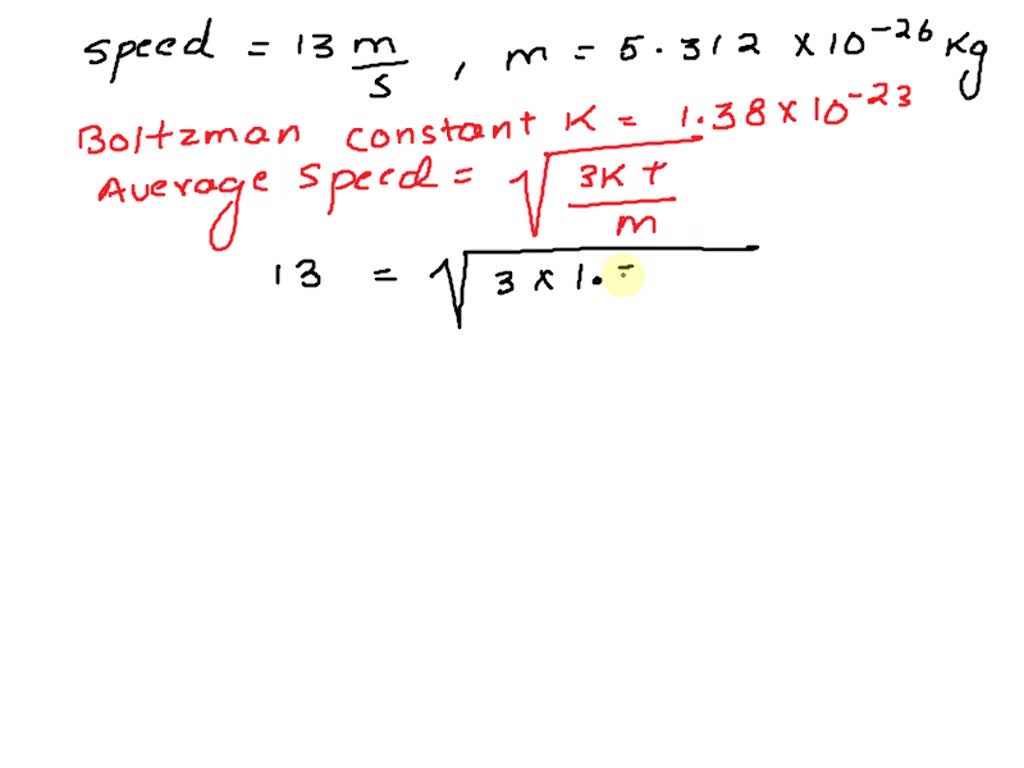 speed = 13 m/s , m = 5.312 × 10⁻²⁶ kg
Boltzman constant K = 1.38 × 10⁻²³
Average speed = √(3Kt/m)
13 = √(3 × 1.